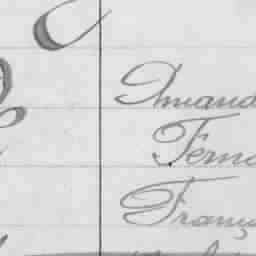 Amand
Ferna
Franç